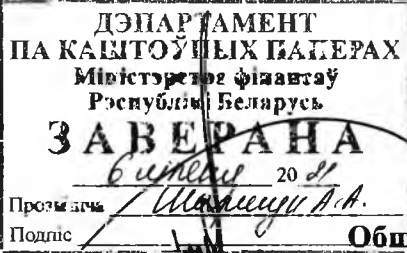 ДЭПАРТАМЕНТ
ПА КАШТОЎНЫХ ПАПЕРАХ
Міністэрства фінансаў
Рэспублікі Беларусь
ЗАВЕРАНА
6 20 21
Прозвішча А.А.
Подпіс
Общ